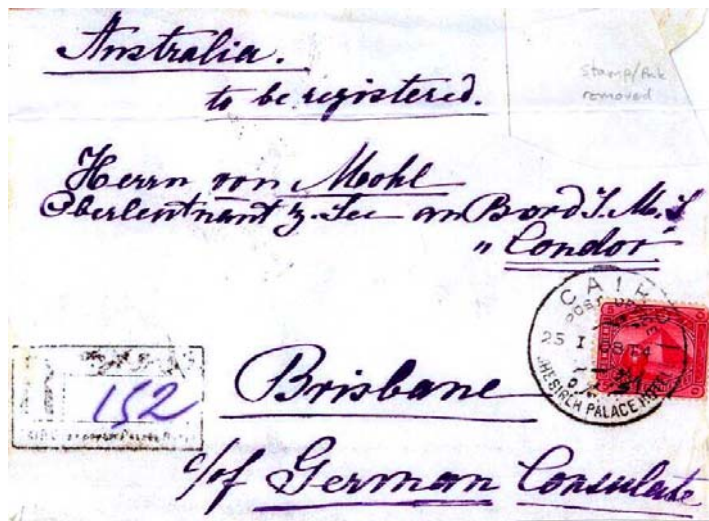 Australia.
to be registered.
stamp/
removed
Herrn von Mohl
Oberleutnant z. See an Bord S.M.S
"Condor"
CAIRO
POST
25 I
GHESIREH PALACE HOTEL
152
Brisbane
c/of German Consulate